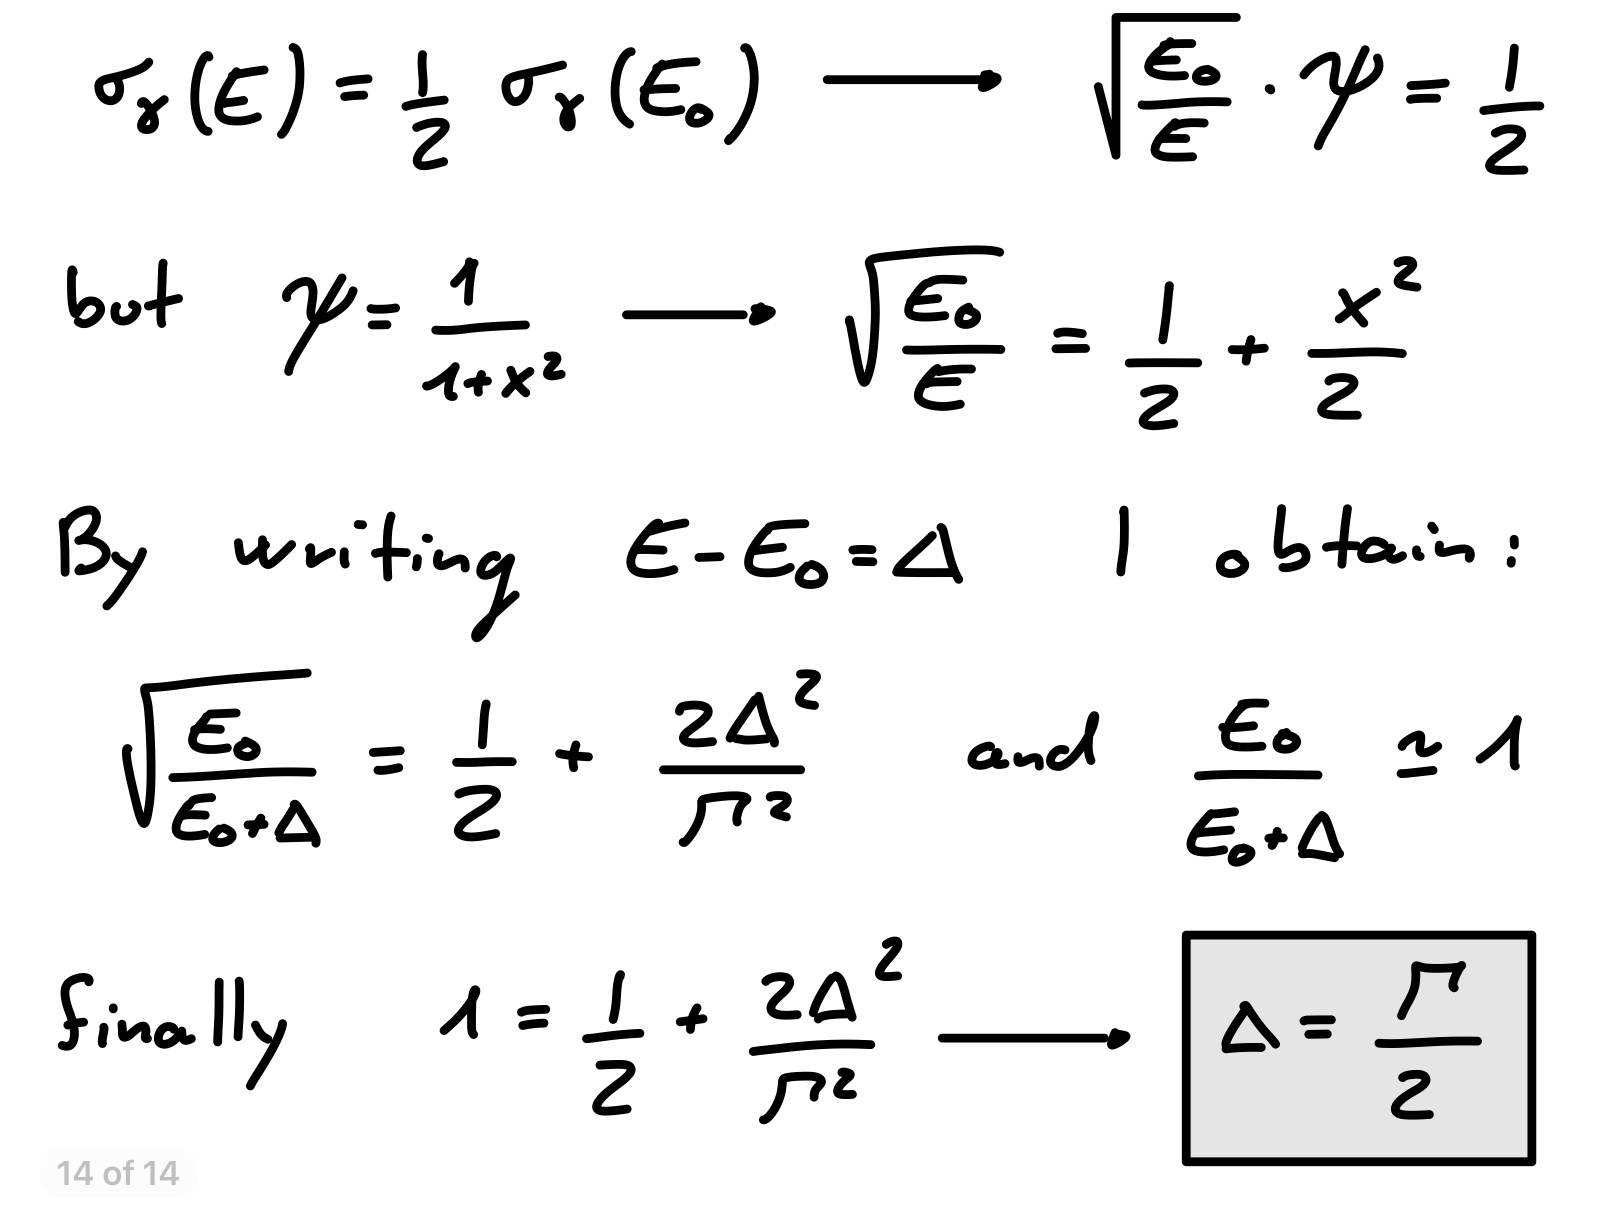 σᵧ(E) = 1/2 σᵧ(E₀) ⟶ √(E₀/E) · ψ = 1/2
but ψ = 1/(1+x²) ⟶ √(E₀/E) = 1/2 + x²/2
By writing E - E₀ = Δ I obtain:
√(E₀/(E₀+Δ)) = 1/2 + 2Δ²/Γ² and E₀/(E₀+Δ) ≃ 1
finally 1 = 1/2 + 2Δ²/Γ² ⟶ Δ = Γ/2
14 of 14